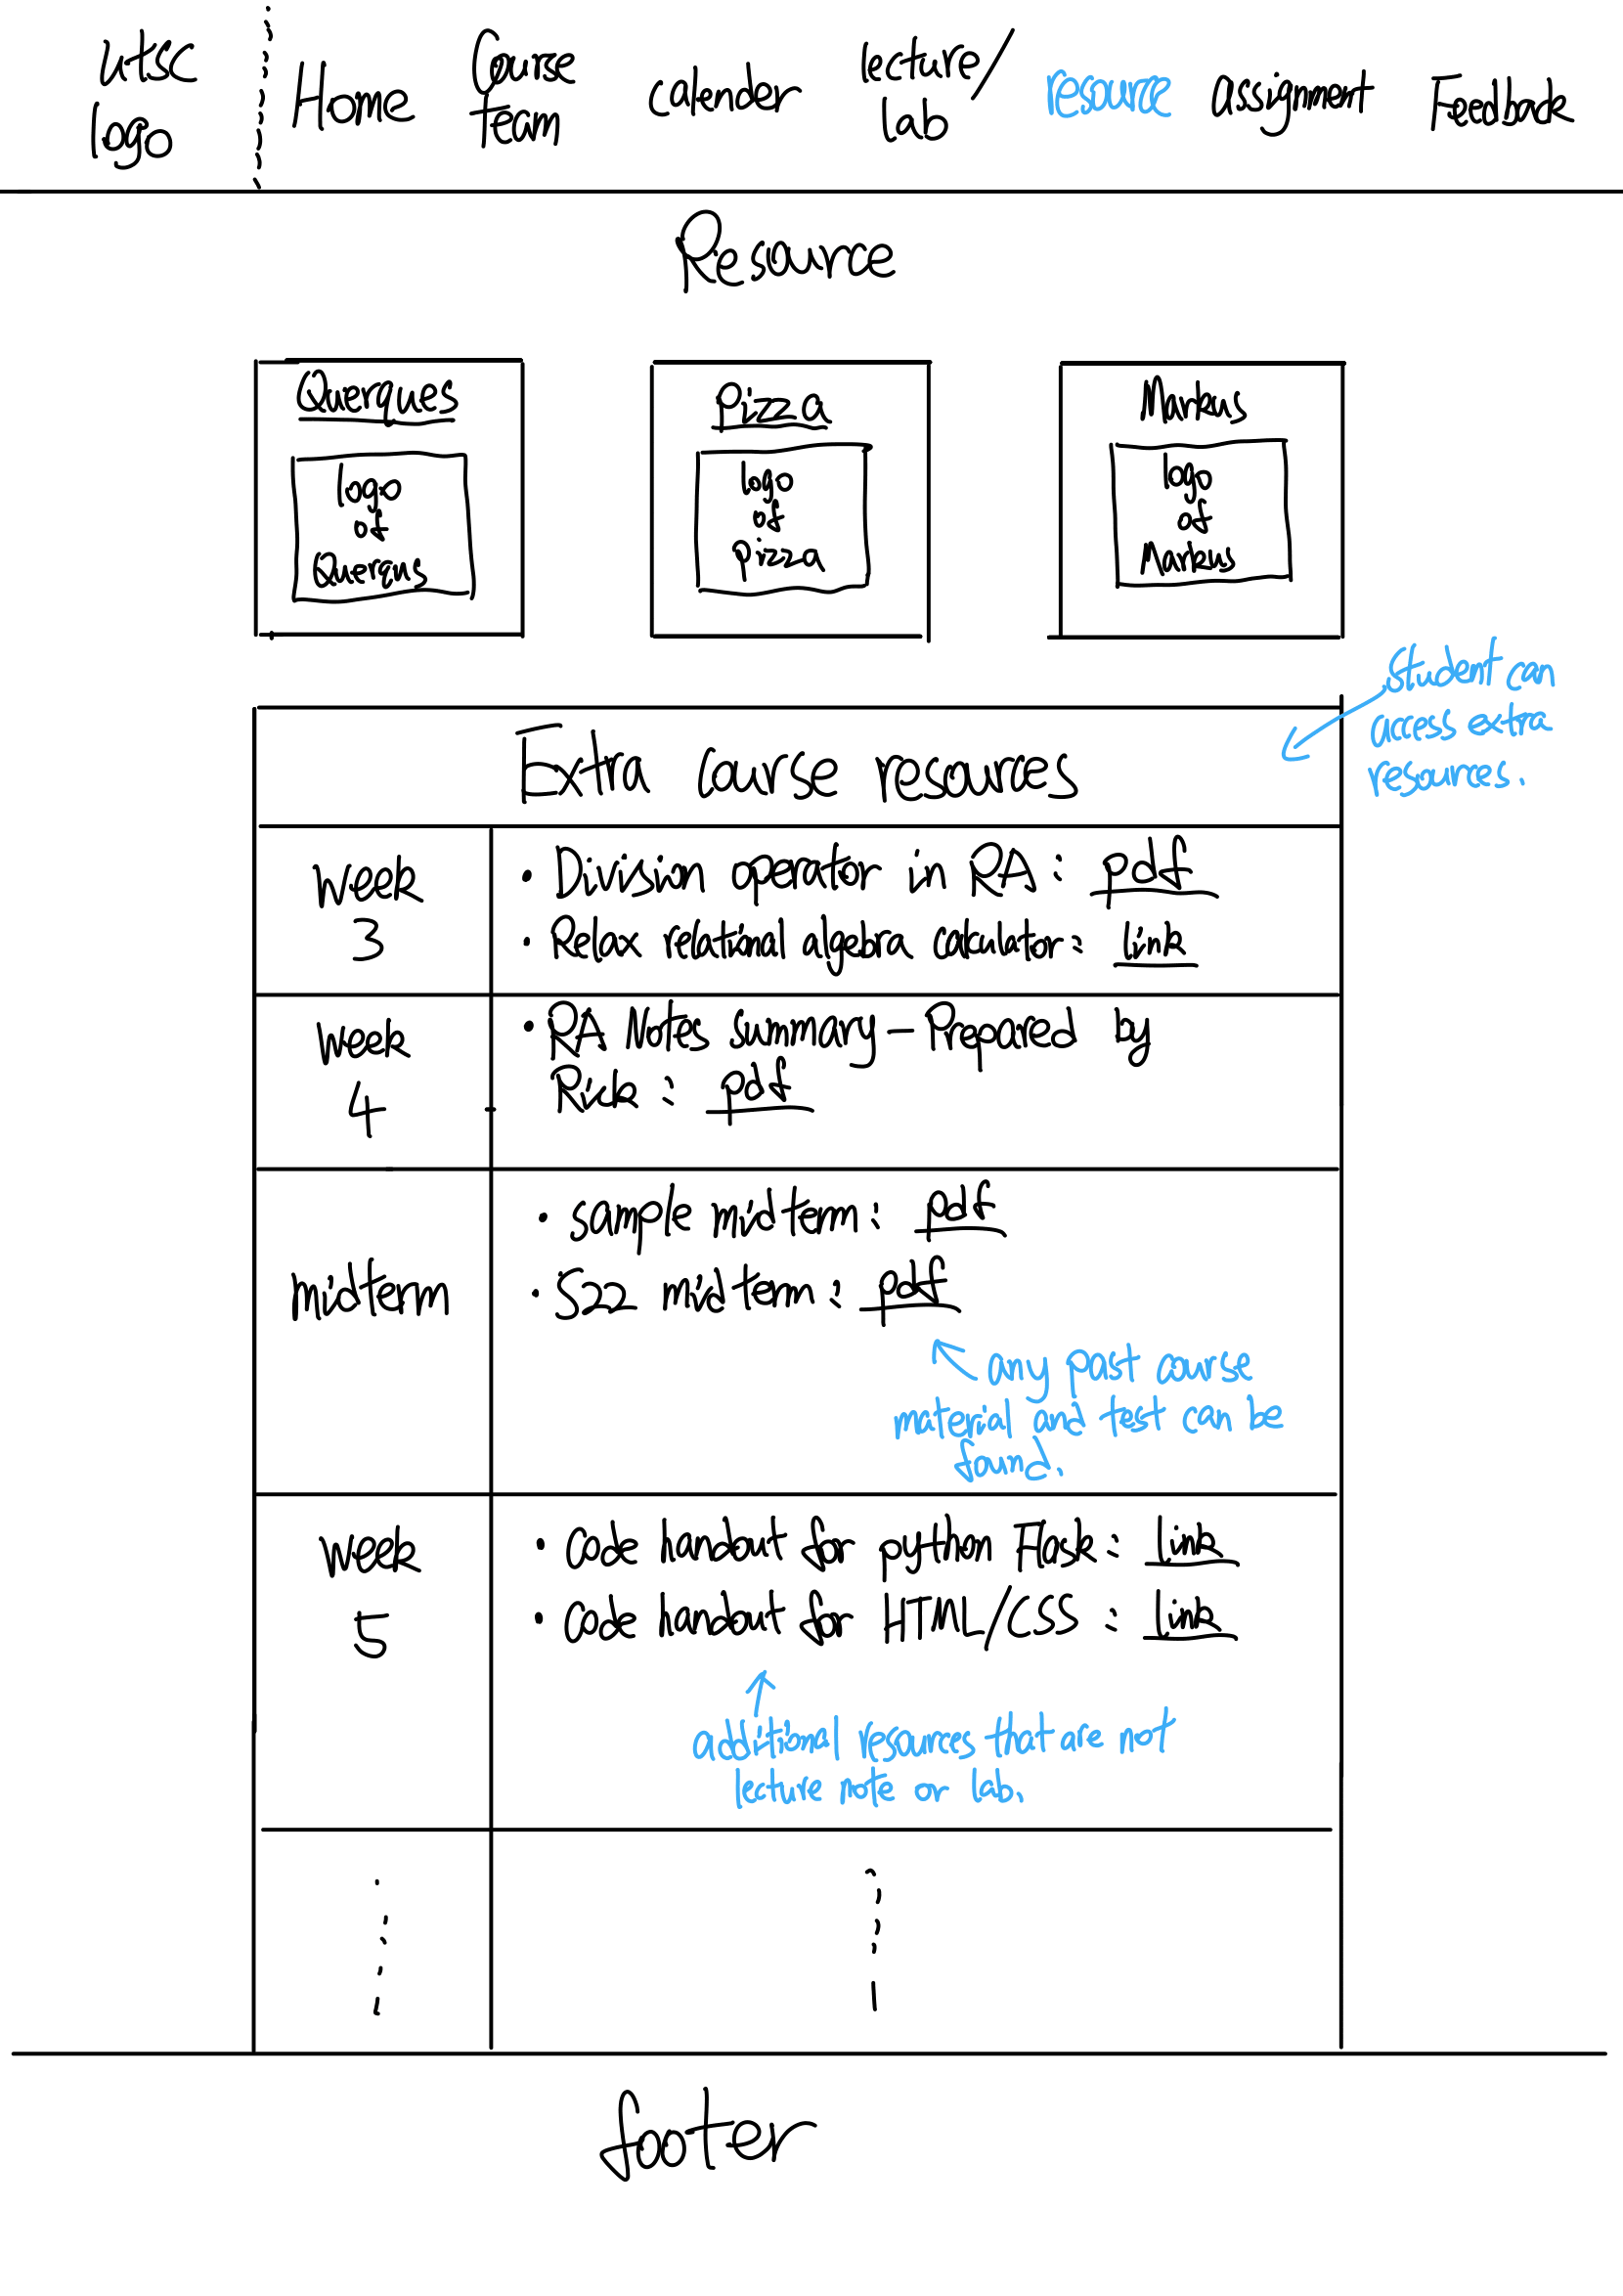 utsc
logo
Home
Course
team
calendar
lecture/
lab
resource
assignment
Feedback
Resource
Querques
logo
of
Querqus
Pizza
logo
of
Pizza
Markus
logo
of
Markus
student can
access extra
resources.
Extra course resources
Week
3
• Division operator in RA: pdf
• Relax relational algebra calculator: link
Week
4
• RA Notes summary - Prepared by
Rick: pdf
midterm
• sample midterm: pdf
• S22 midterm: pdf
any past course
material and test can be
found.
Week
5
• Code handout for python Flask: Link
• Code handout for HTML/CSS: Link
additional resources that are not
lecture note or lab.
footer